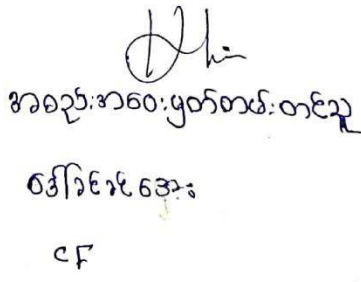 အစည်းအဝေးမှတ်တမ်းတင်သူ
ဒေါ်ခင်ခင်အေး
CF